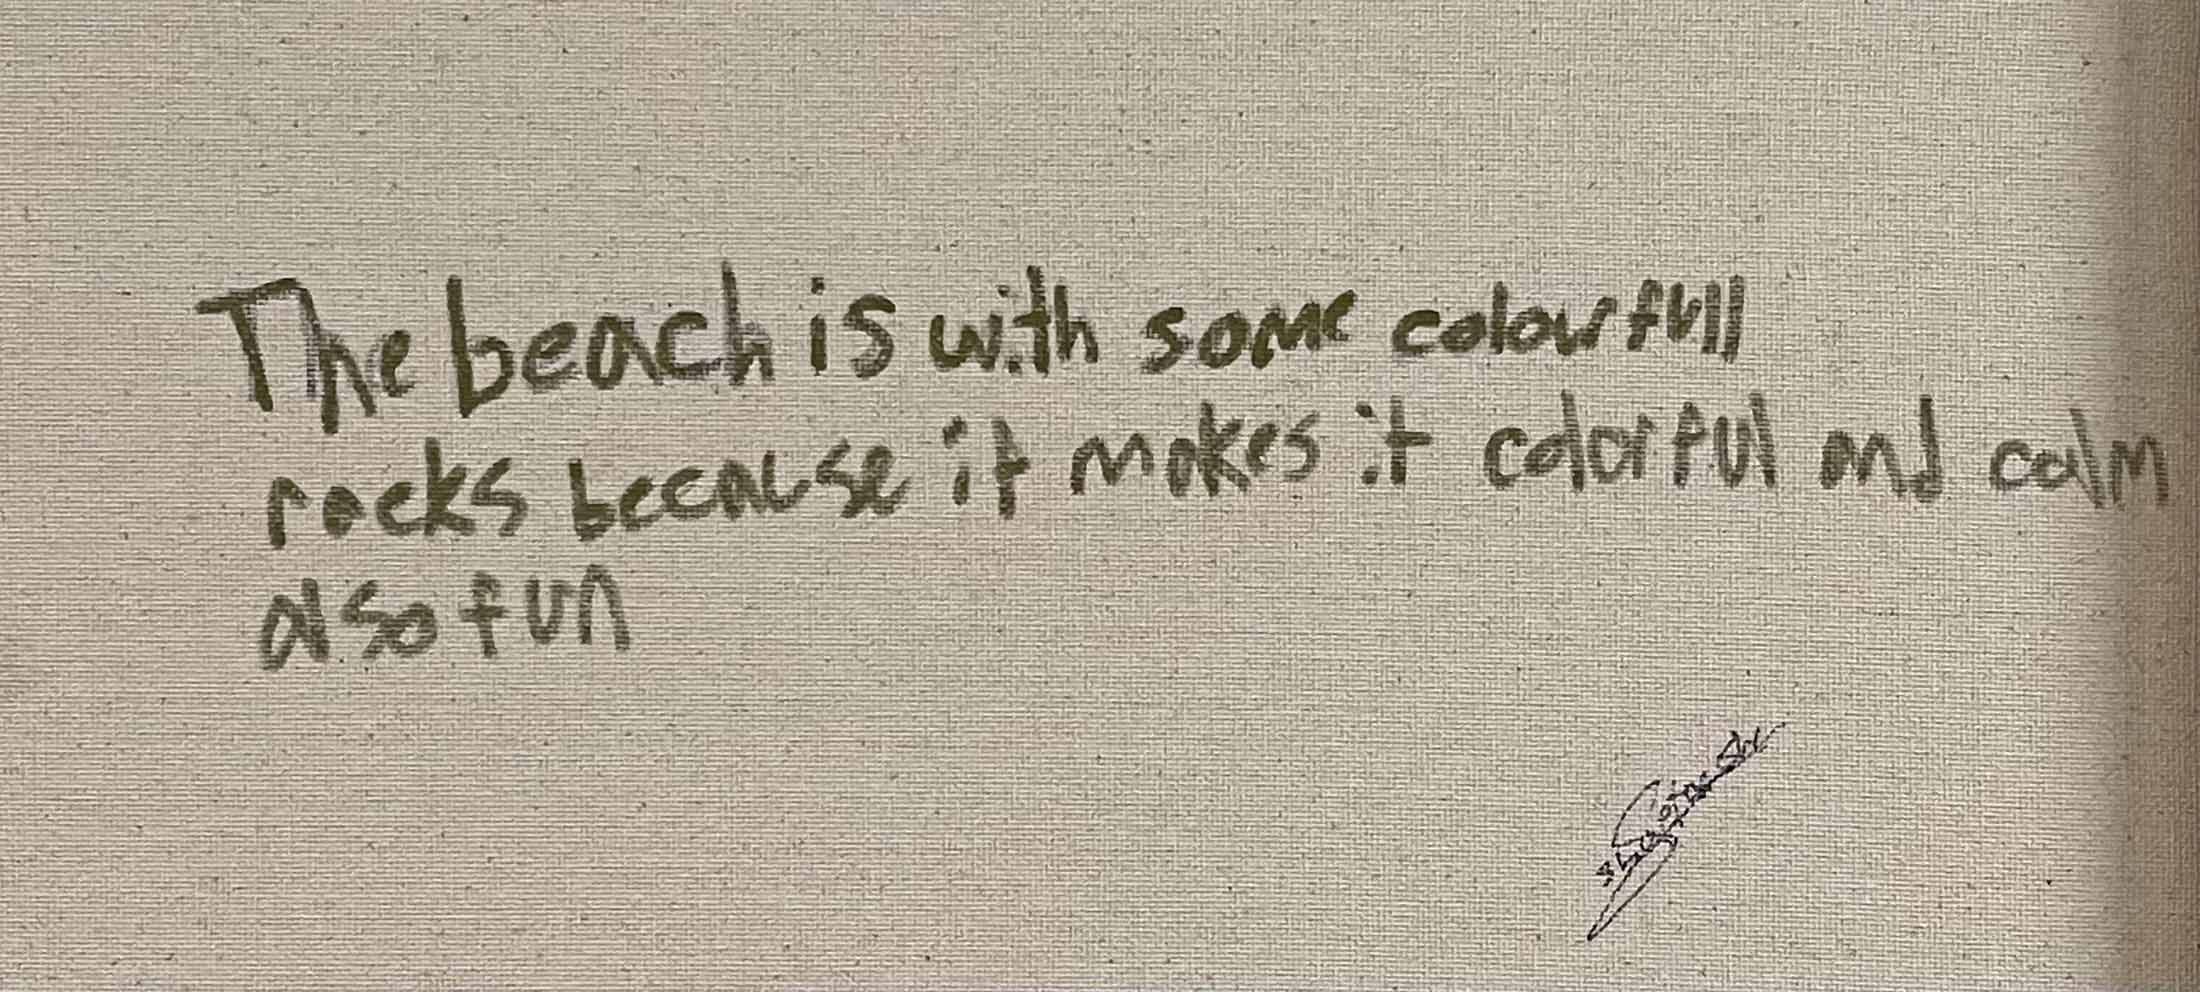 The beach is with some colourfull
rocks because it makes it colorful and calm
also fun